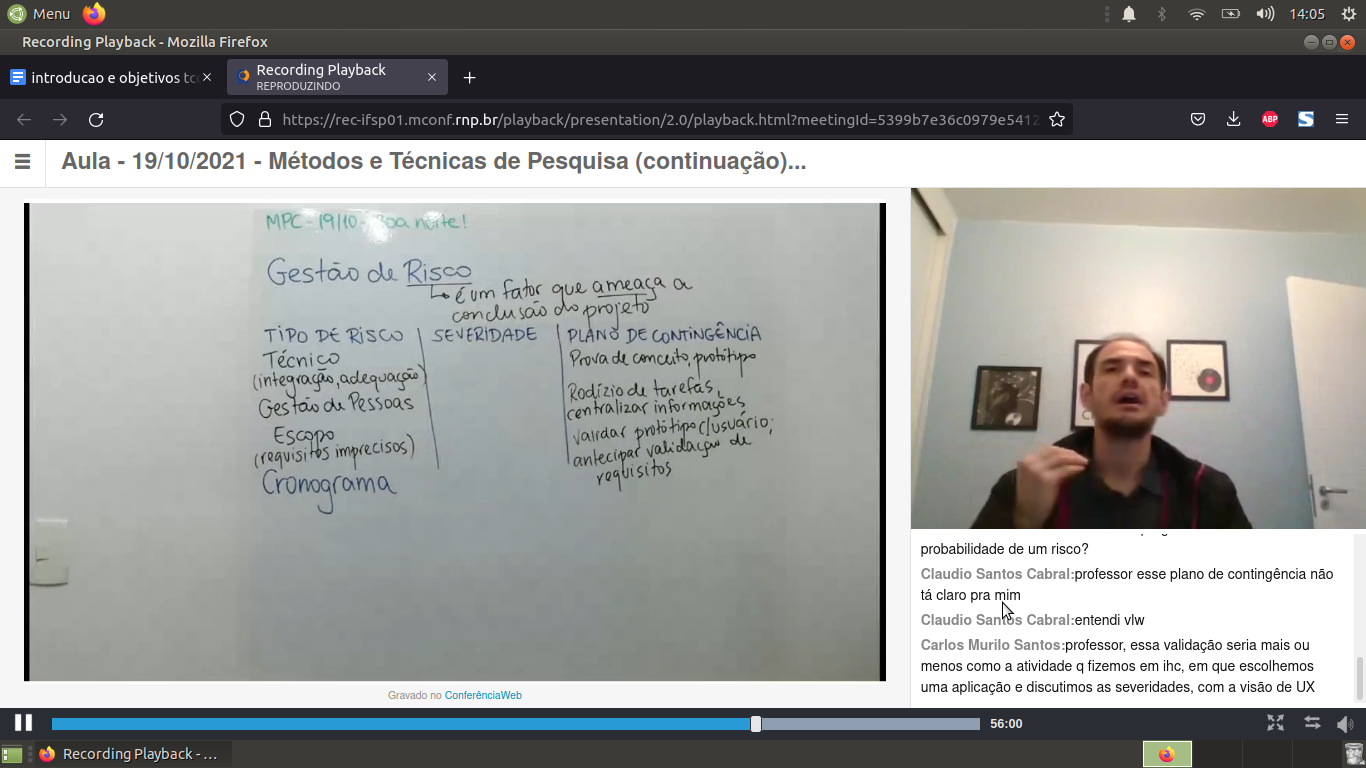 Menu
14:05
Recording Playback - Mozilla Firefox
introducao e objetivos tcc
Recording Playback
REPRODUZINDO
https://rec-ifsp01.mconf.rnp.br/playback/presentation/2.0/playback.html?meetingId=5399b7e36c0979e5412
ABP
S
Aula - 19/10/2021 - Métodos e Técnicas de Pesquisa (continuação)...
MPC - 19/10 - Boa noite!
Gestão de Risco
é um fator que ameaça a
conclusão do projeto
TIPO DE RISCO SEVERIDADE PLANO DE CONTINGÊNCIA
Técnico Prova de conceito, protótipo
(integração, adequação)
Gestão de Pessoas Rodízio de tarefas,
centralizar informações
Escopo validar protótipo c/usuário;
(requisitos imprecisos) antecipar validação de
requisitos
Cronograma
Gravado no ConferênciaWeb
probabilidade de um risco?
Claudio Santos Cabral:professor esse plano de contingência não
tá claro pra mim
Claudio Santos Cabral:entendi vlw
Carlos Murilo Santos:professor, essa validação seria mais ou
menos como a atividade q fizemos em ihc, em que escolhemos
uma aplicação e discutimos as severidades, com a visão de UX
56:00
Recording Playback - ...